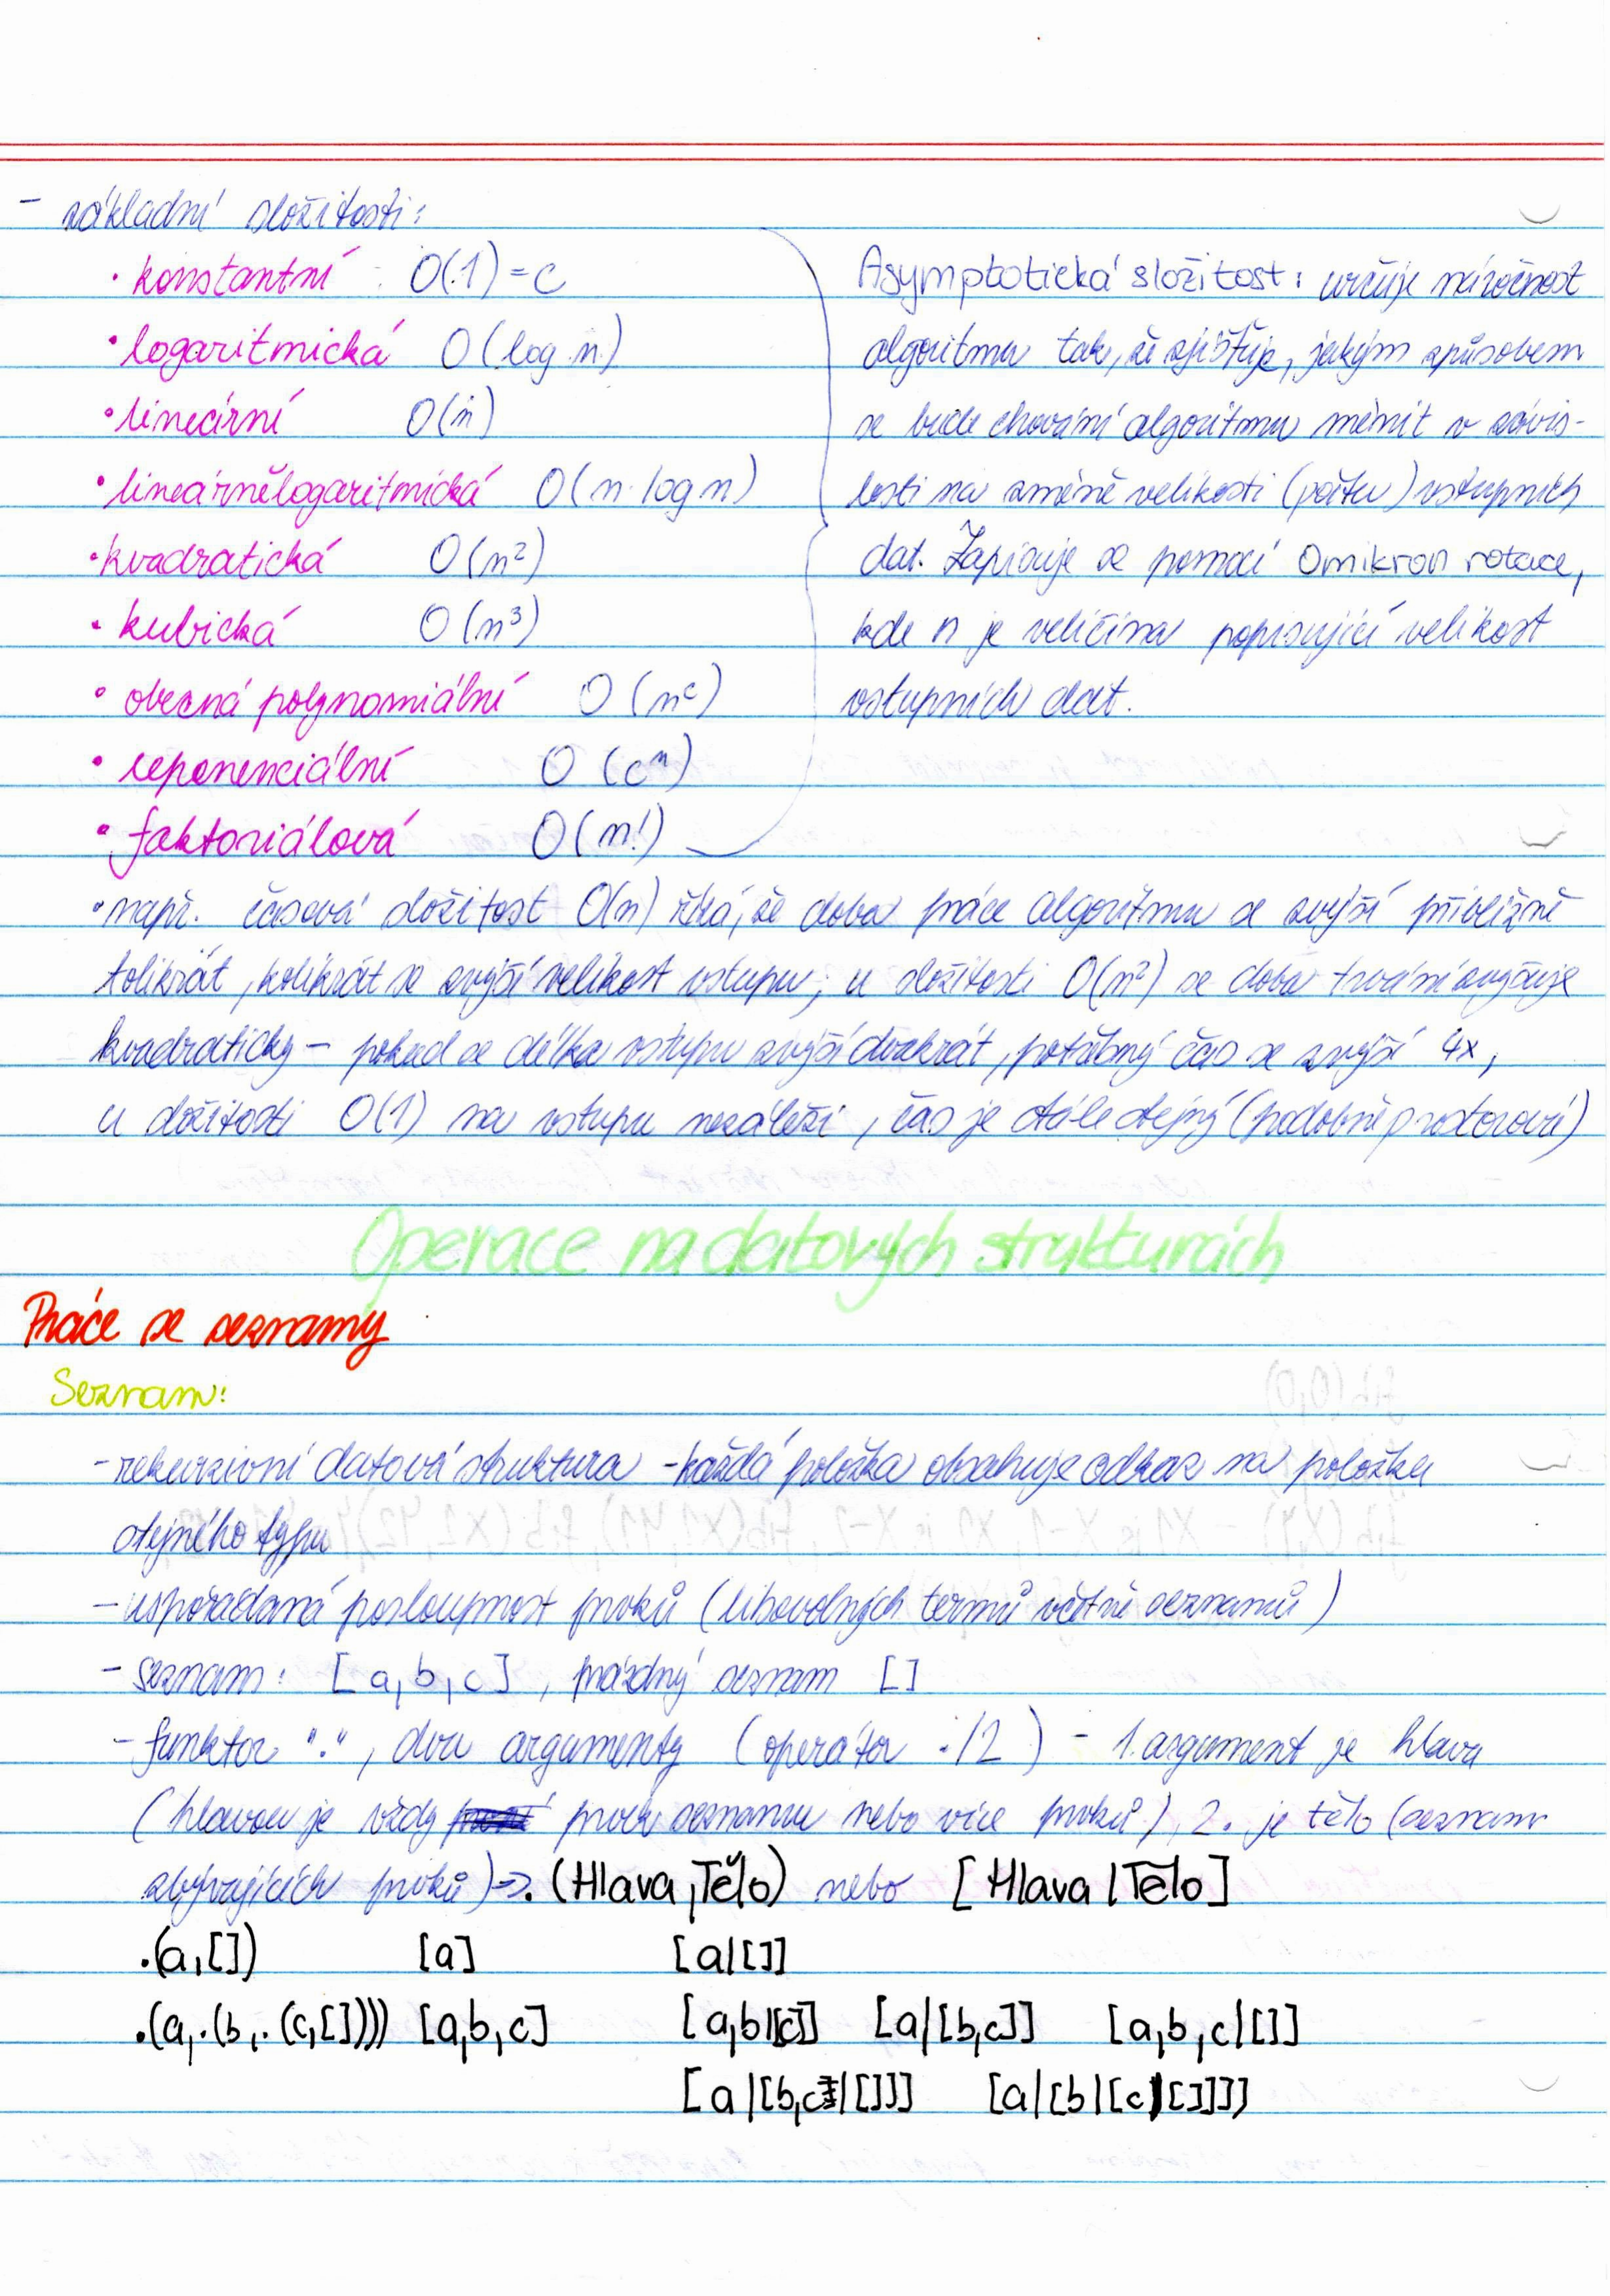 - základní složitosti:
• konstantní O(1) = c
• logaritmická O(log n)
• lineární O(n)
• lineárnělogaritmická O(n·log n)
• kvadratická O(n²)
• kubická O(n³)
• obecná polynomiální O(nᶜ)
• exponenciální O(cⁿ)
• faktoriálová O(n!)
Asymptotická složitost: určuje náročnost
algoritmu tak, že zjišťuje, jakým způsobem
se bude chování algoritmu měnit v závis-
losti na změně velikosti (počtu) vstupních
dat. Zapisuje se pomocí Omikron notace,
kde n je veličina popisující velikost
vstupních dat.
• např. časová složitost O(n) říká, že doba práce algoritmu se zvýší přibližně
tolikrát, kolikrát se zvýší velikost vstupu; u složitosti O(n²) se doba trvání zvyšuje
kvadraticky - pokud se délka vstupu zvýší dvakrát, potřebný čas se zvýší 4x,
u složitosti O(1) na vstupu nezáleží, čas je stále stejný (podobně prostorová)
Operace na datových strukturách
Práce se seznamy
Seznam:
- rekurzivní datová struktura - každá položka obsahuje odkaz na položku
stejného typu
- uspořádaná posloupnost prvků (libovolných termů včetně seznamů)
- seznam: [a,b,c], prázdný seznam []
- funktor ".", dva argumenty (operátor ./2) - 1. argument je hlava
(hlavou je vždy prvek seznamu nebo více prvků), 2. je tělo (seznam
zbývajících prvků) => .(Hlava,Tělo) nebo [Hlava|Tělo]
.(a,[]) [a] [a|[]]
.(a,.(b,.(c,[]))) [a,b,c] [a,b|[c]] [a|[b,c]] [a,b,c|[]]
[a|[b,c|[]]] [a|[b|[c|[]]]]